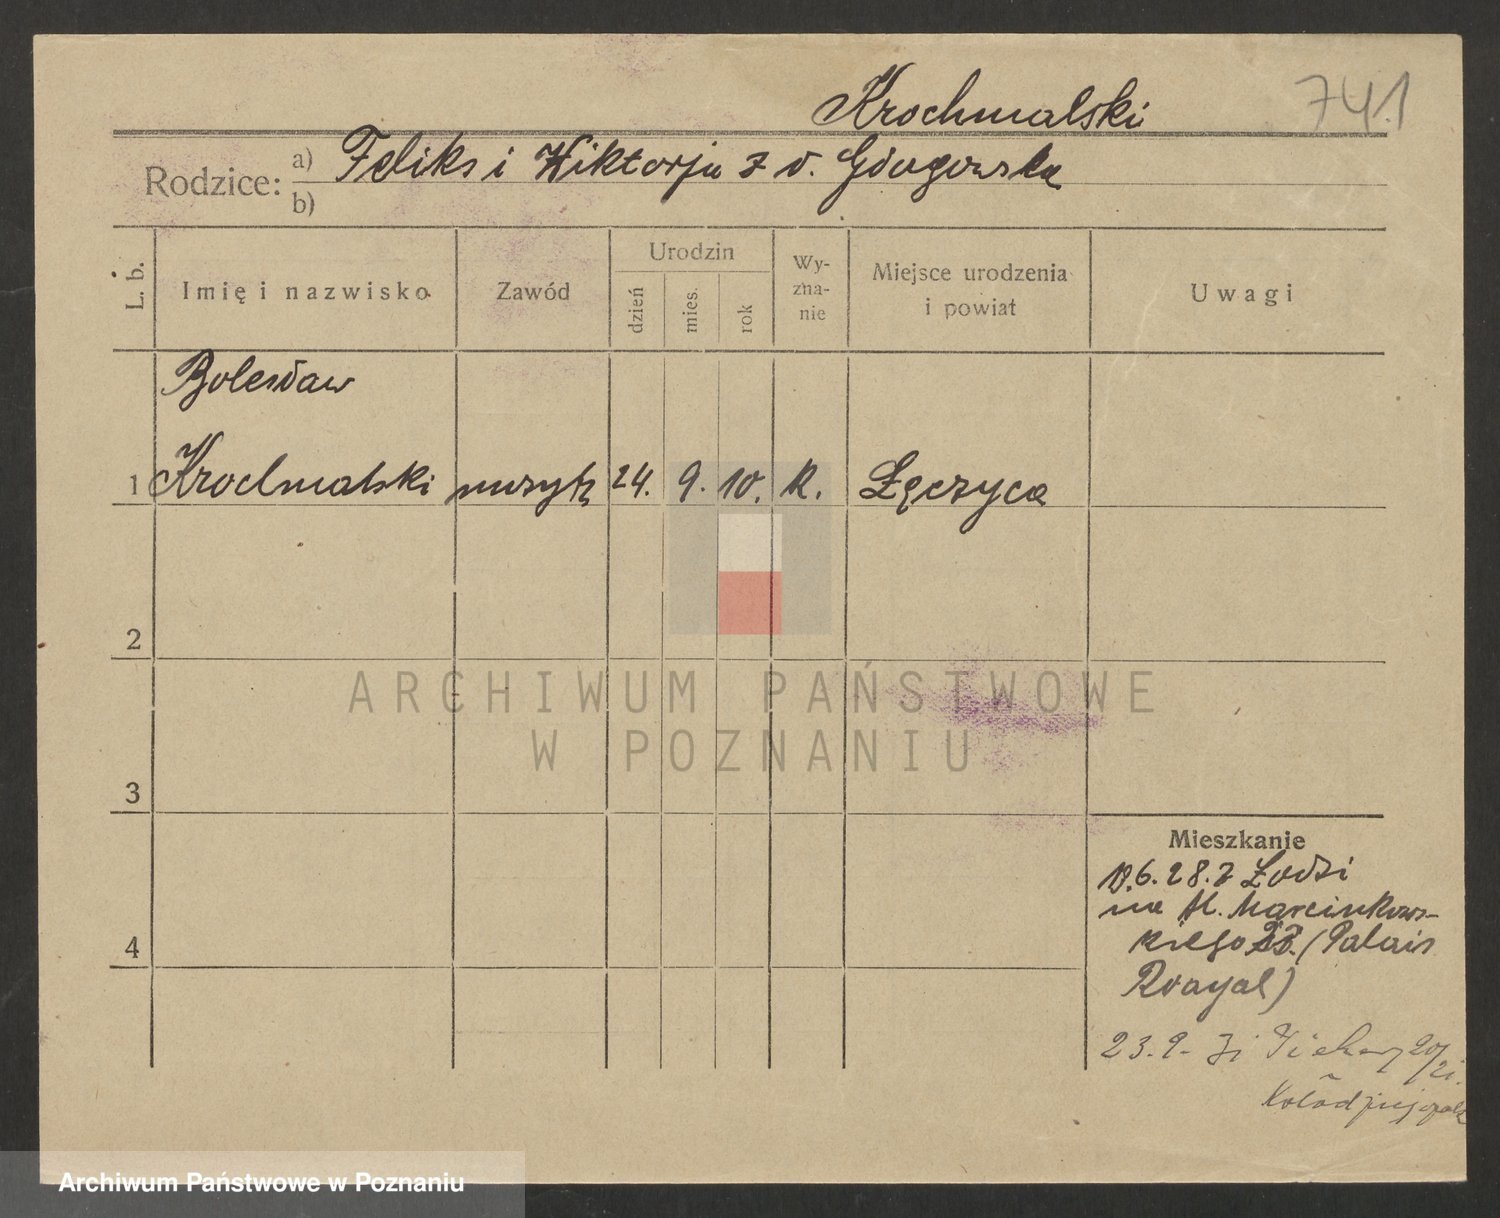 Krochmalski
741
Rodzice: a) Feliks i Wiktorja z d. Głogowska
b)
L. b.
Imię i nazwisko
Zawód
Urodzin
dzień
mies.
rok
Wy-
zna-
nie
Miejsce urodzenia
i powiat
Uwagi
Bolesław
1 Krochmalski muzyk 24. 9. 10. k. Łęczyca
2
ARCHIWUM PAŃSTWOWE
W POZNANIU
3
4
Mieszkanie
10.6.28. z Łodzi
na Al. Marcinkows-
kiego (Palais
Roayal)
23.9.
Archiwum Państwowe w Poznaniu